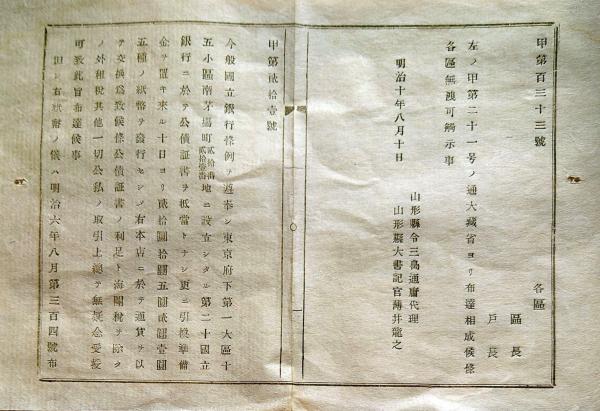 甲第百三十三號
各區
區長
戶長
左ノ甲第二十一号ノ通大藏省ヨリ布達相成候條
各區無洩可觸示事
明治十年八月十日
山形縣令三島通庸代理
山形縣大書記官薄井龍之
甲第貳拾壹號
今般國立銀行條例ヲ遵奉シ東京府下第一大區十
五小區南茅場町貳拾番貳拾壹番地ニ設立シタル第二十國立
銀行ニ於テ公債証書ヲ抵當トナシ更ニ引換準備
金ヲ置キ來ル十日ヨリ貳拾圓拾圓五圓貳圓壹圓
五種ノ紙幣ヲ發行セシメ右本店ニ於テ通貨ヲ以
テ交換爲致候條公債証書ノ利足ト海關税ヲ除ク
ノ外租税其他一切公私ノ取引上總テ無疑念受授
可致此旨布達候事
但シ右紙幣ノ儀ハ明治六年八月第三百四號布